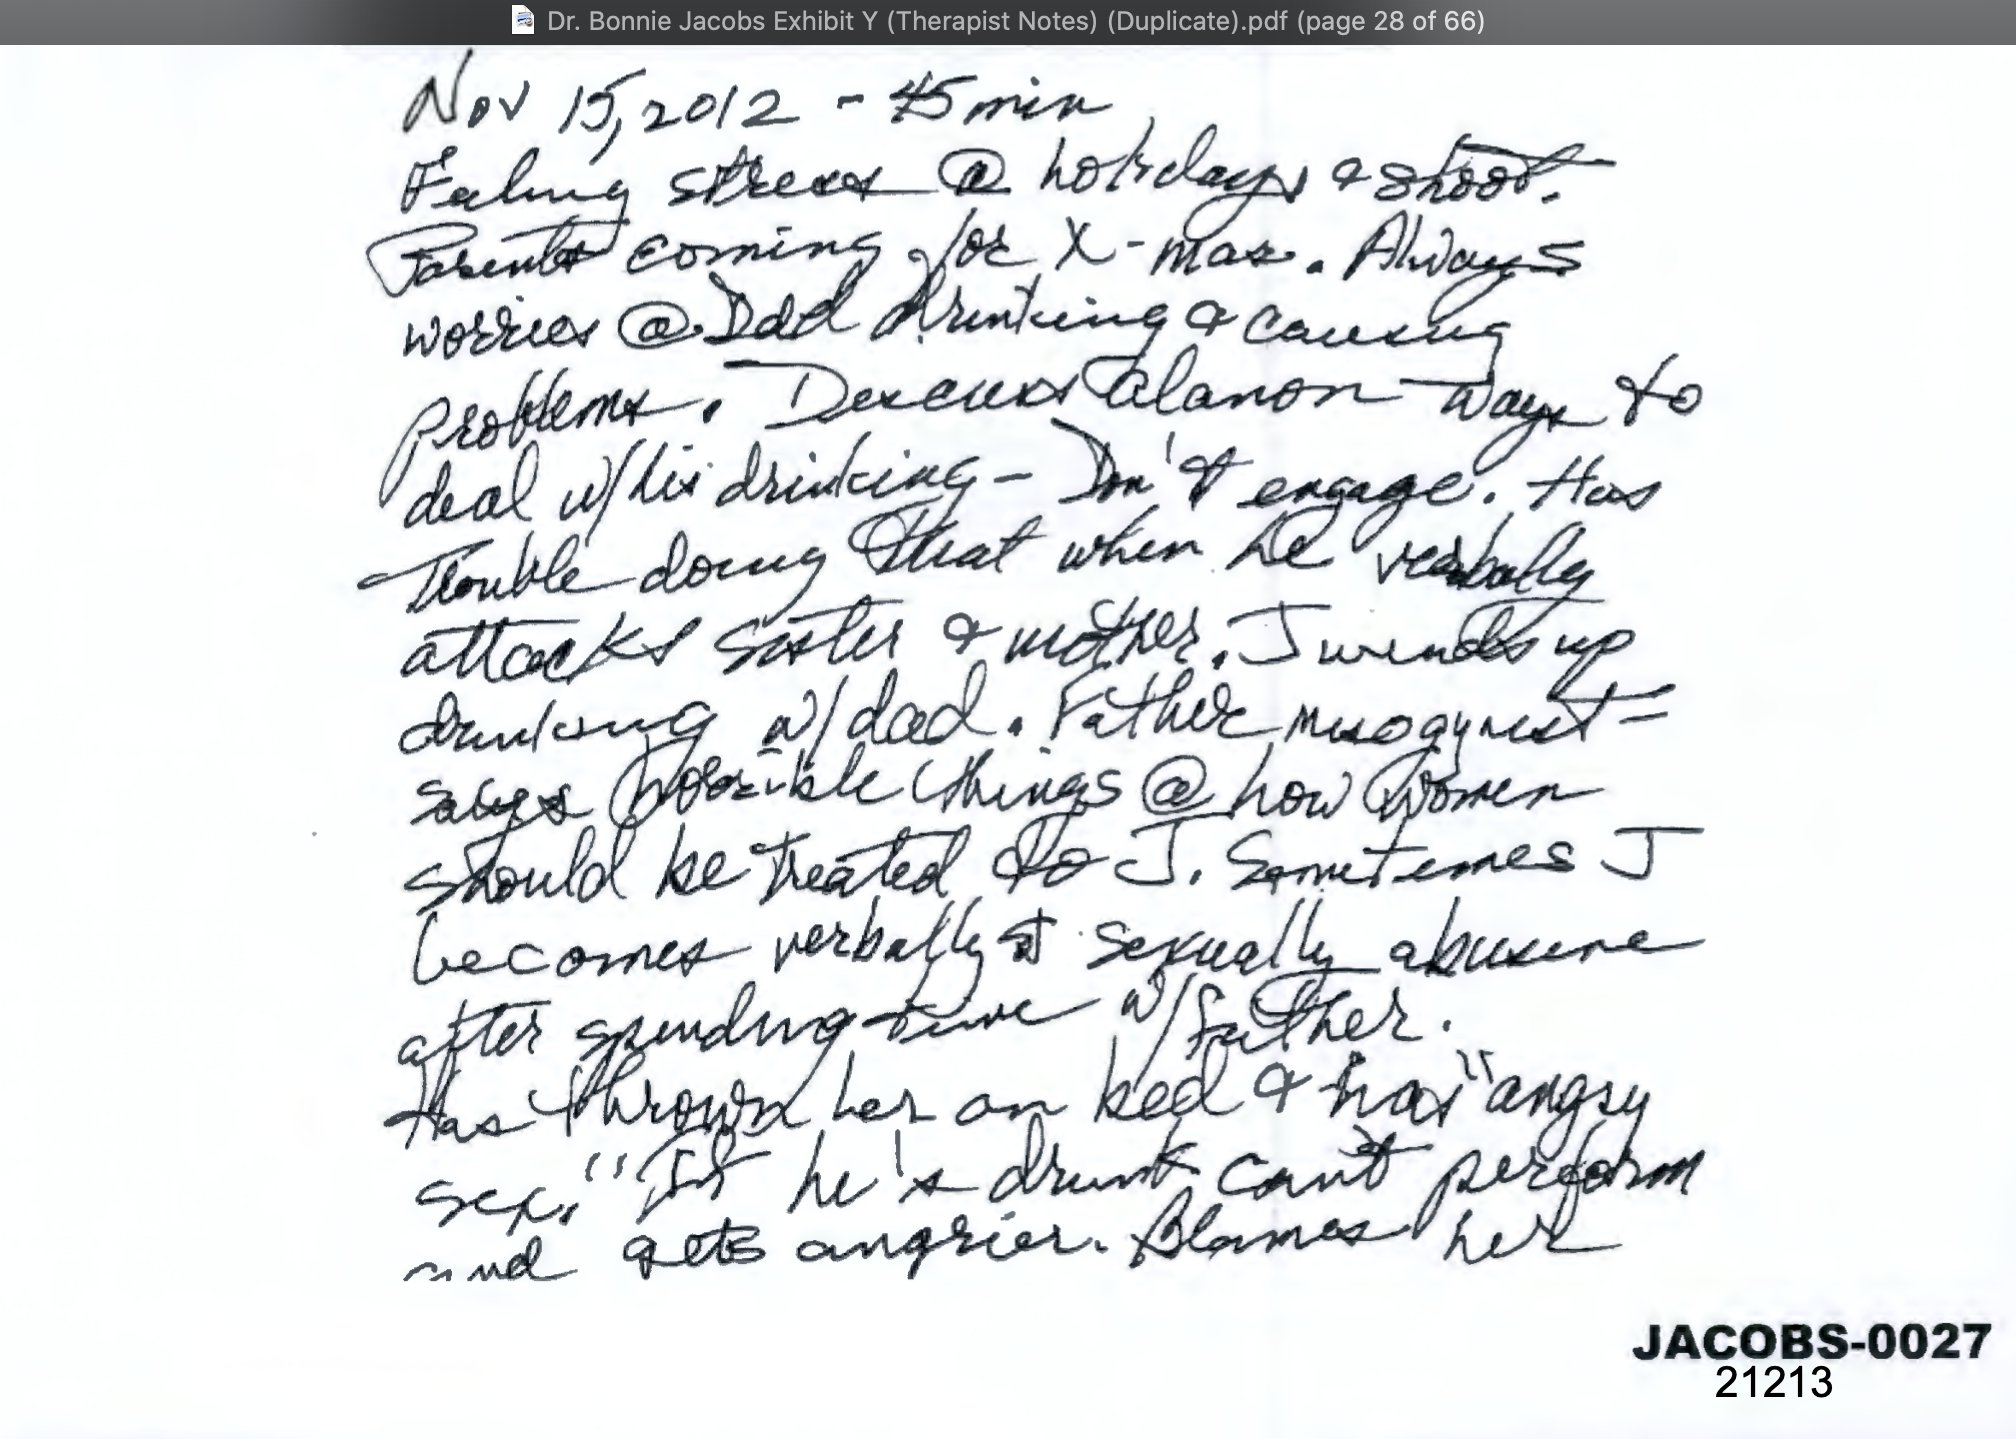 Dr. Bonnie Jacobs Exhibit Y (Therapist Notes) (Duplicate).pdf (page 28 of 66)
Nov 15, 2012 - 45 min
Feeling stress @ holidays & shoot.
Parents coming for X-mas. Always
worries @ Dad drinking & causing
problems. Discuss alanon ways to
deal w/ his drinking - Don't engage. Has
trouble doing that when he verbally
attacks sister & mother. J winds up
drinking w/ dad. Father misogynist =
says horrible things @ how women
should be treated to J. Sometimes J
becomes verbally & sexually abusive
after spending time w/ father.
Has thrown her on bed & has "angry
sex." If he's drunk can't perform
and gets angrier. Blames her
JACOBS-0027
21213